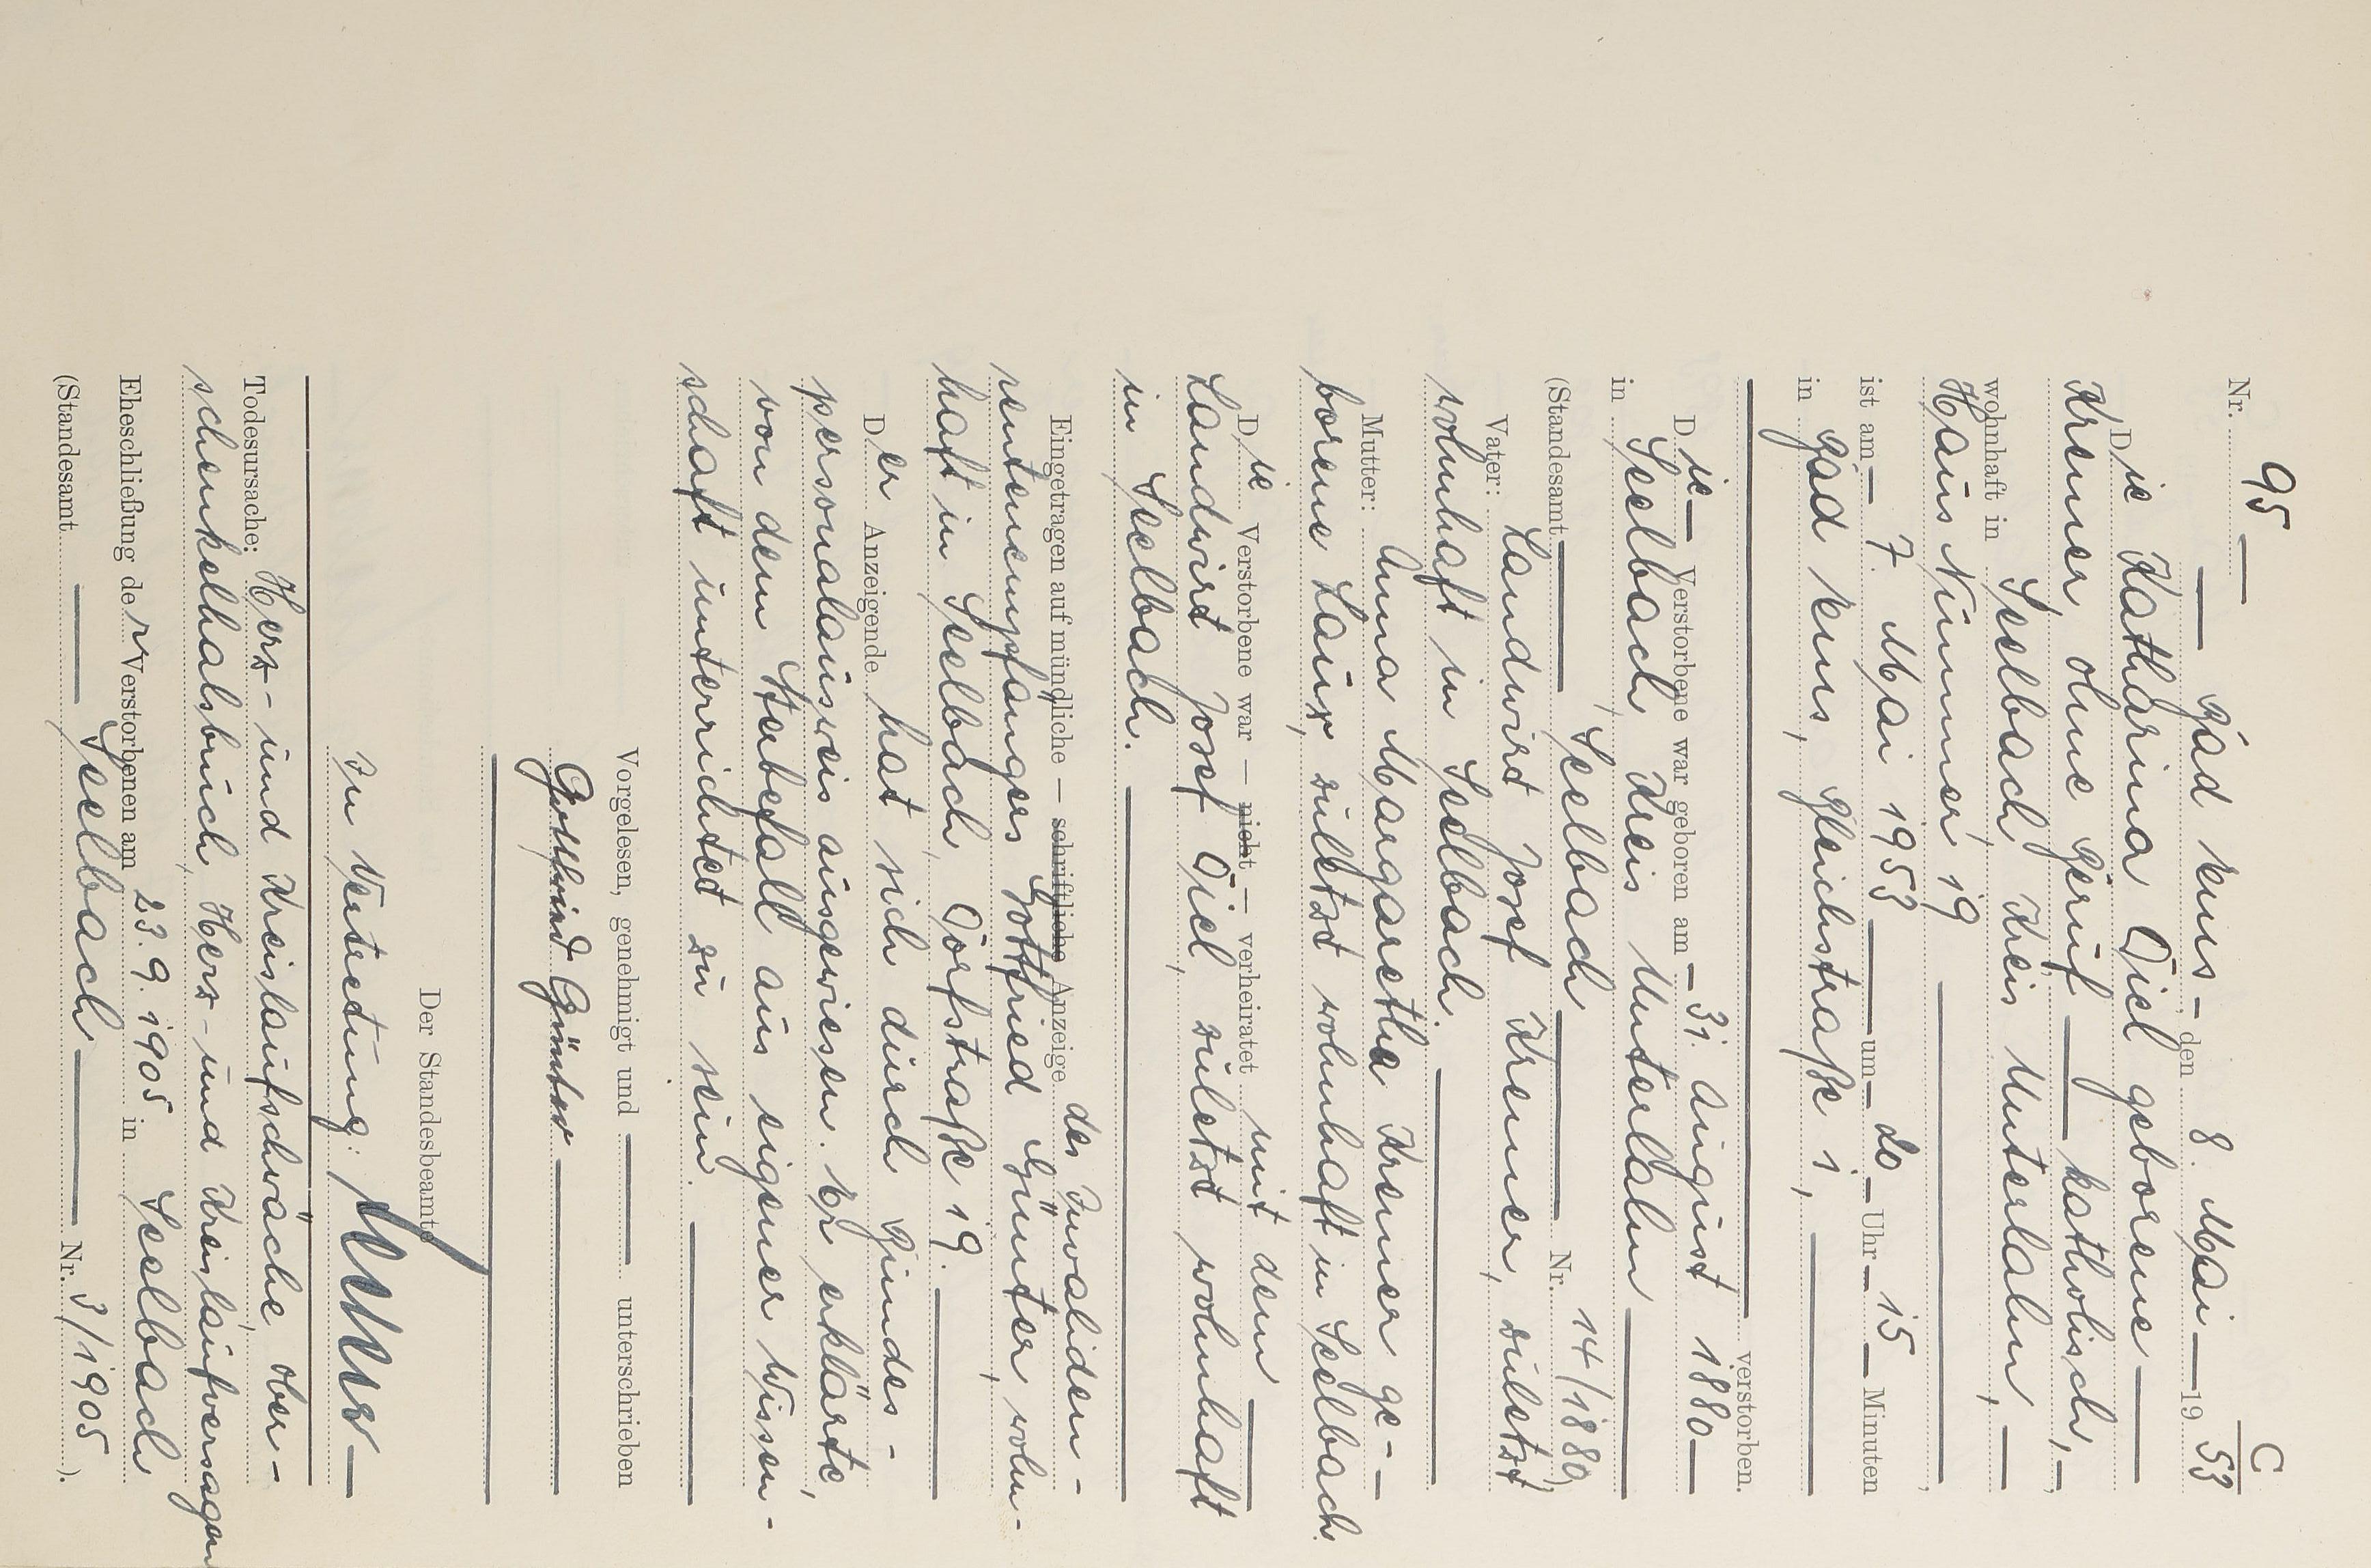 C
Nr. 95
Bad Ems, den 8. Mai 1953
Die Katharina Diel geborene
Kremer, ohne Beruf katholisch,
wohnhaft in Seelbach, Kreis Unterlahn,
Haus Nummer 19
ist am 7. Mai 1953 um 20 Uhr 15 Minuten
in Bad Ems, Bleichstraße 1,
verstorben.
Die Verstorbene war geboren am 31. August 1880
in Seelbach, Kreis Unterlahn
(Standesamt Seelbach Nr. 14/1880)
Vater: Landwirt Josef Kremer, zuletzt
wohnhaft in Seelbach.
Mutter: Anna Margaretha Kremer ge-
borene Laux, zuletzt wohnhaft in Seelbach.
Die Verstorbene war — nicht — verheiratet mit dem
Landwirt Josef Diel, zuletzt wohnhaft
in Seelbach.
Eingetragen auf mündliche — schriftliche Anzeige des Invaliden-
rentenempfängers Gottfried Günter, wohn-
haft in Seelbach, Dorfstraße 19.
Der Anzeigende hat sich durch Bundes-
personalausweis ausgewiesen. Er erklärte,
von dem Sterbefall aus eigener Wissen-
schaft unterrichtet zu sein.
Vorgelesen, genehmigt und unterschrieben
Gottfried Günter
Der Standesbeamte
In Vertretung:
Todesursache: Herz- und Kreislaufschwäche, Ober-
schenkelhalsbruch, Herz- und Kreislaufversagen
Eheschließung der Verstorbenen am 23. 9. 1905 in Seelbach
(Standesamt Seelbach Nr. 3/1905).